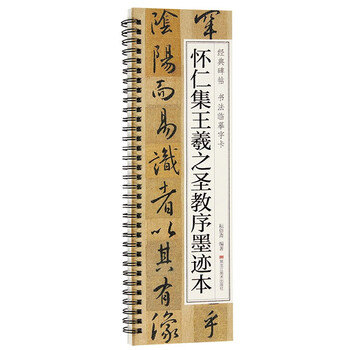 经典碑帖 书法临摹字卡
怀仁集王羲之圣教序墨迹本
编著
陰陽而易識者以其有像
乎